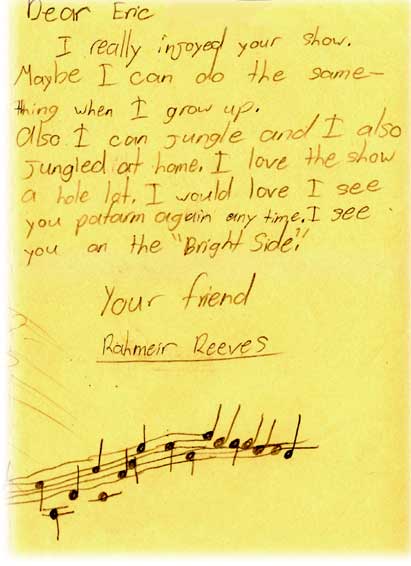 Dear Eric
I really injoyed your show.
Maybe I can do the same-
thing when I grow up.
Also I can jungle and I also
jungled at home. I love the show
a hole lot. I would love I see
you patarm again any time. I see
you on the "Bright Side!"
Your friend
Rahmeir Reeves